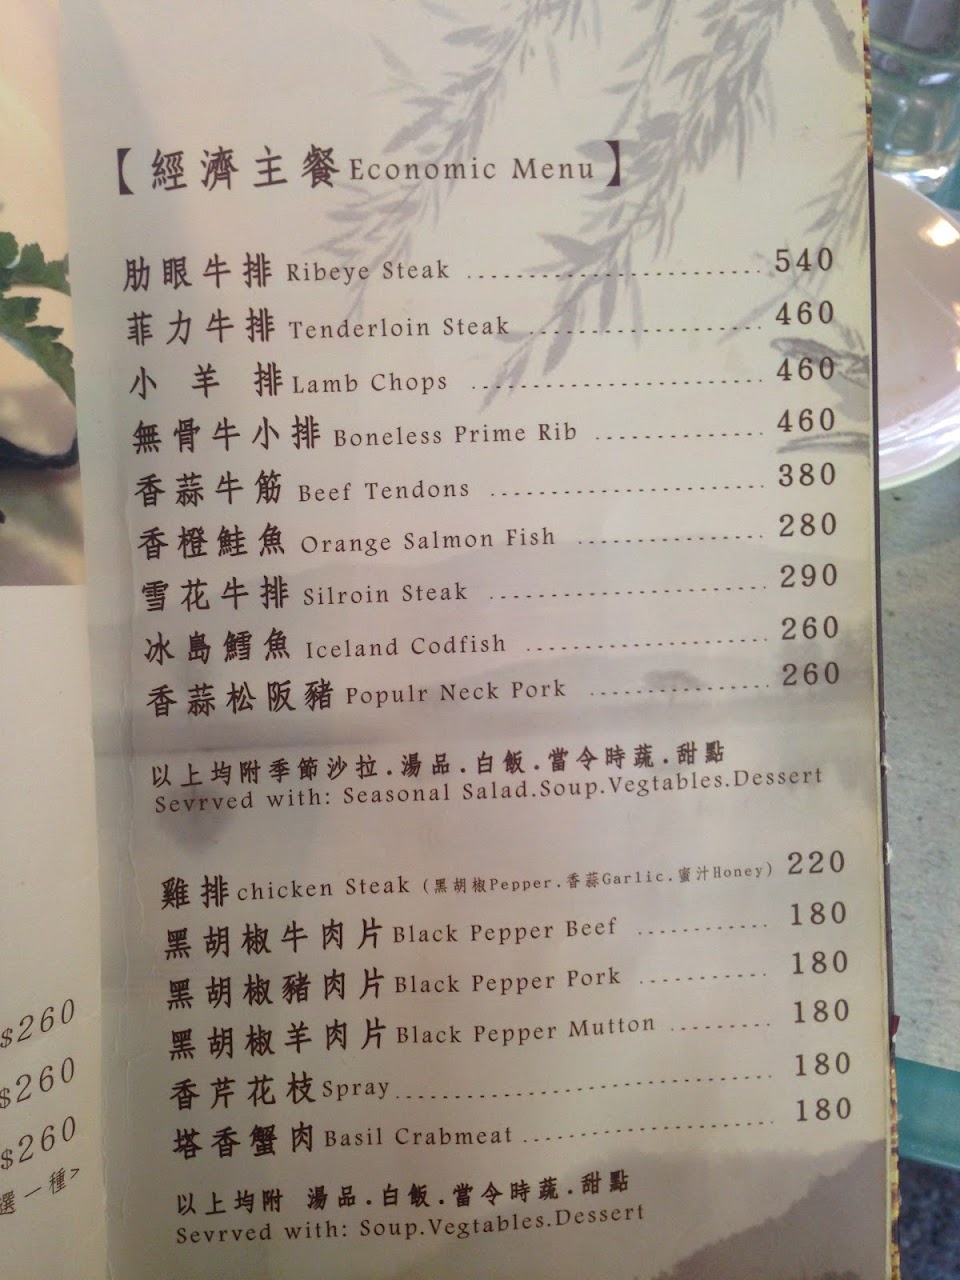 【經濟主餐Economic Menu】
肋眼牛排 Ribeye Steak ........................ 540
菲力牛排 Tenderloin Steak .................... 460
小 羊 排 Lamb Chops ........................ 460
無骨牛小排 Boneless Prime Rib .............. 460
香蒜牛筋 Beef Tendons ...................... 380
香橙鮭魚 Orange Salmon Fish ................ 280
雪花牛排 Silroin Steak ...................... 290
冰島鱈魚 Iceland Codfish .................... 260
香蒜松阪豬 Populr Neck Pork ................ 260
以上均附季節沙拉.湯品.白飯.當令時蔬.甜點
Sevrved with: Seasonal Salad.Soup.Vegtables.Dessert
雞排chicken Steak (黑胡椒Pepper.香蒜Garlic.蜜汁Honey) 220
黑胡椒牛肉片Black Pepper Beef ............ 180
黑胡椒豬肉片Black Pepper Pork ............ 180
黑胡椒羊肉片Black Pepper Mutton .......... 180
香芹花枝Spray.............................. 180
塔香蟹肉Basil Crabmeat.................... 180
以上均附 湯品.白飯.當令時蔬.甜點
Sevrved with: Soup.Vegtables.Dessert
$260
$260
$260
選一種>